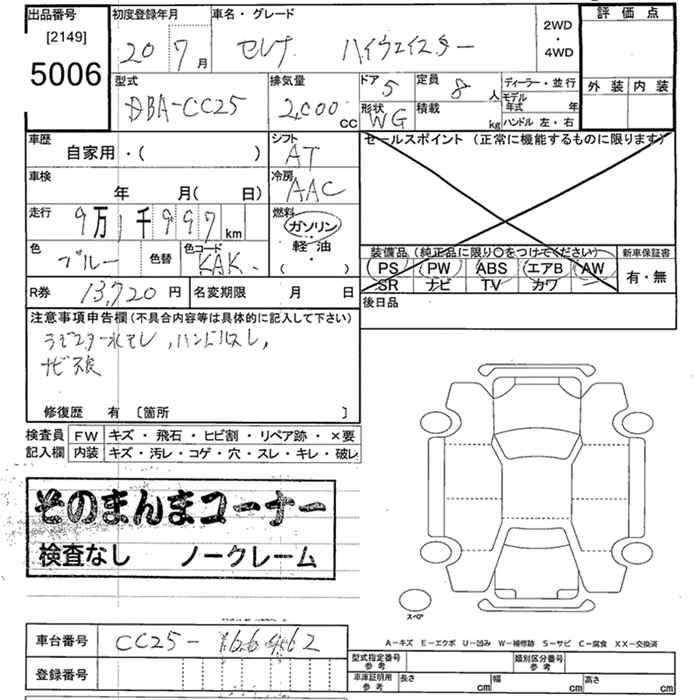 出品番号 初度登録年月 車名・グレード 2WD・4WD 評価点
[2149]
5006 20 7月 セレナ ハイウェイスター
外装 内装
型式 排気量 ドア 5 定員 8人 ディーラー・並行
DBA-CC25 2,000 CC 形状 WG 積載 kg モデル年式 年
ハンドル 左・右
車歴 シフト セールスポイント(正常に機能するものに限ります)
自家用・( ) AT
車検 冷房
年 月( 日) AAC
走行 9万1千997km 燃料 ガソリン・軽油・( )
色 ブルー 色替 色コード KAK
装備品(純正品に限り○をつけてください) 新車保証書
PS PW ABS エアB AW 有・無
SR ナビ TV カワ
R券 13,720円 名変期限 月 日 後日品
注意事項申告欄(不具合内容等は具体的に記入して下さい)
ラジエター水モレ,ハンドルスレ,
修復歴 有 [箇所 ]
検査員 FW キズ・飛石・ヒビ割・リペア跡・×要
記入欄 内装 キズ・汚レ・コゲ・穴・スレ・キレ・破レ
そのまんまコーナー
検査なし ノークレーム
スペア
A-キズ E-エクボ U-凹み W-補修跡 S-サビ C-腐食 XX-交換済
車台番号 CC25-166462
登録番号
型式指定番号 参考 類別区分番号 参考
車庫証明用 参考 長さ cm 幅 cm 高さ cm